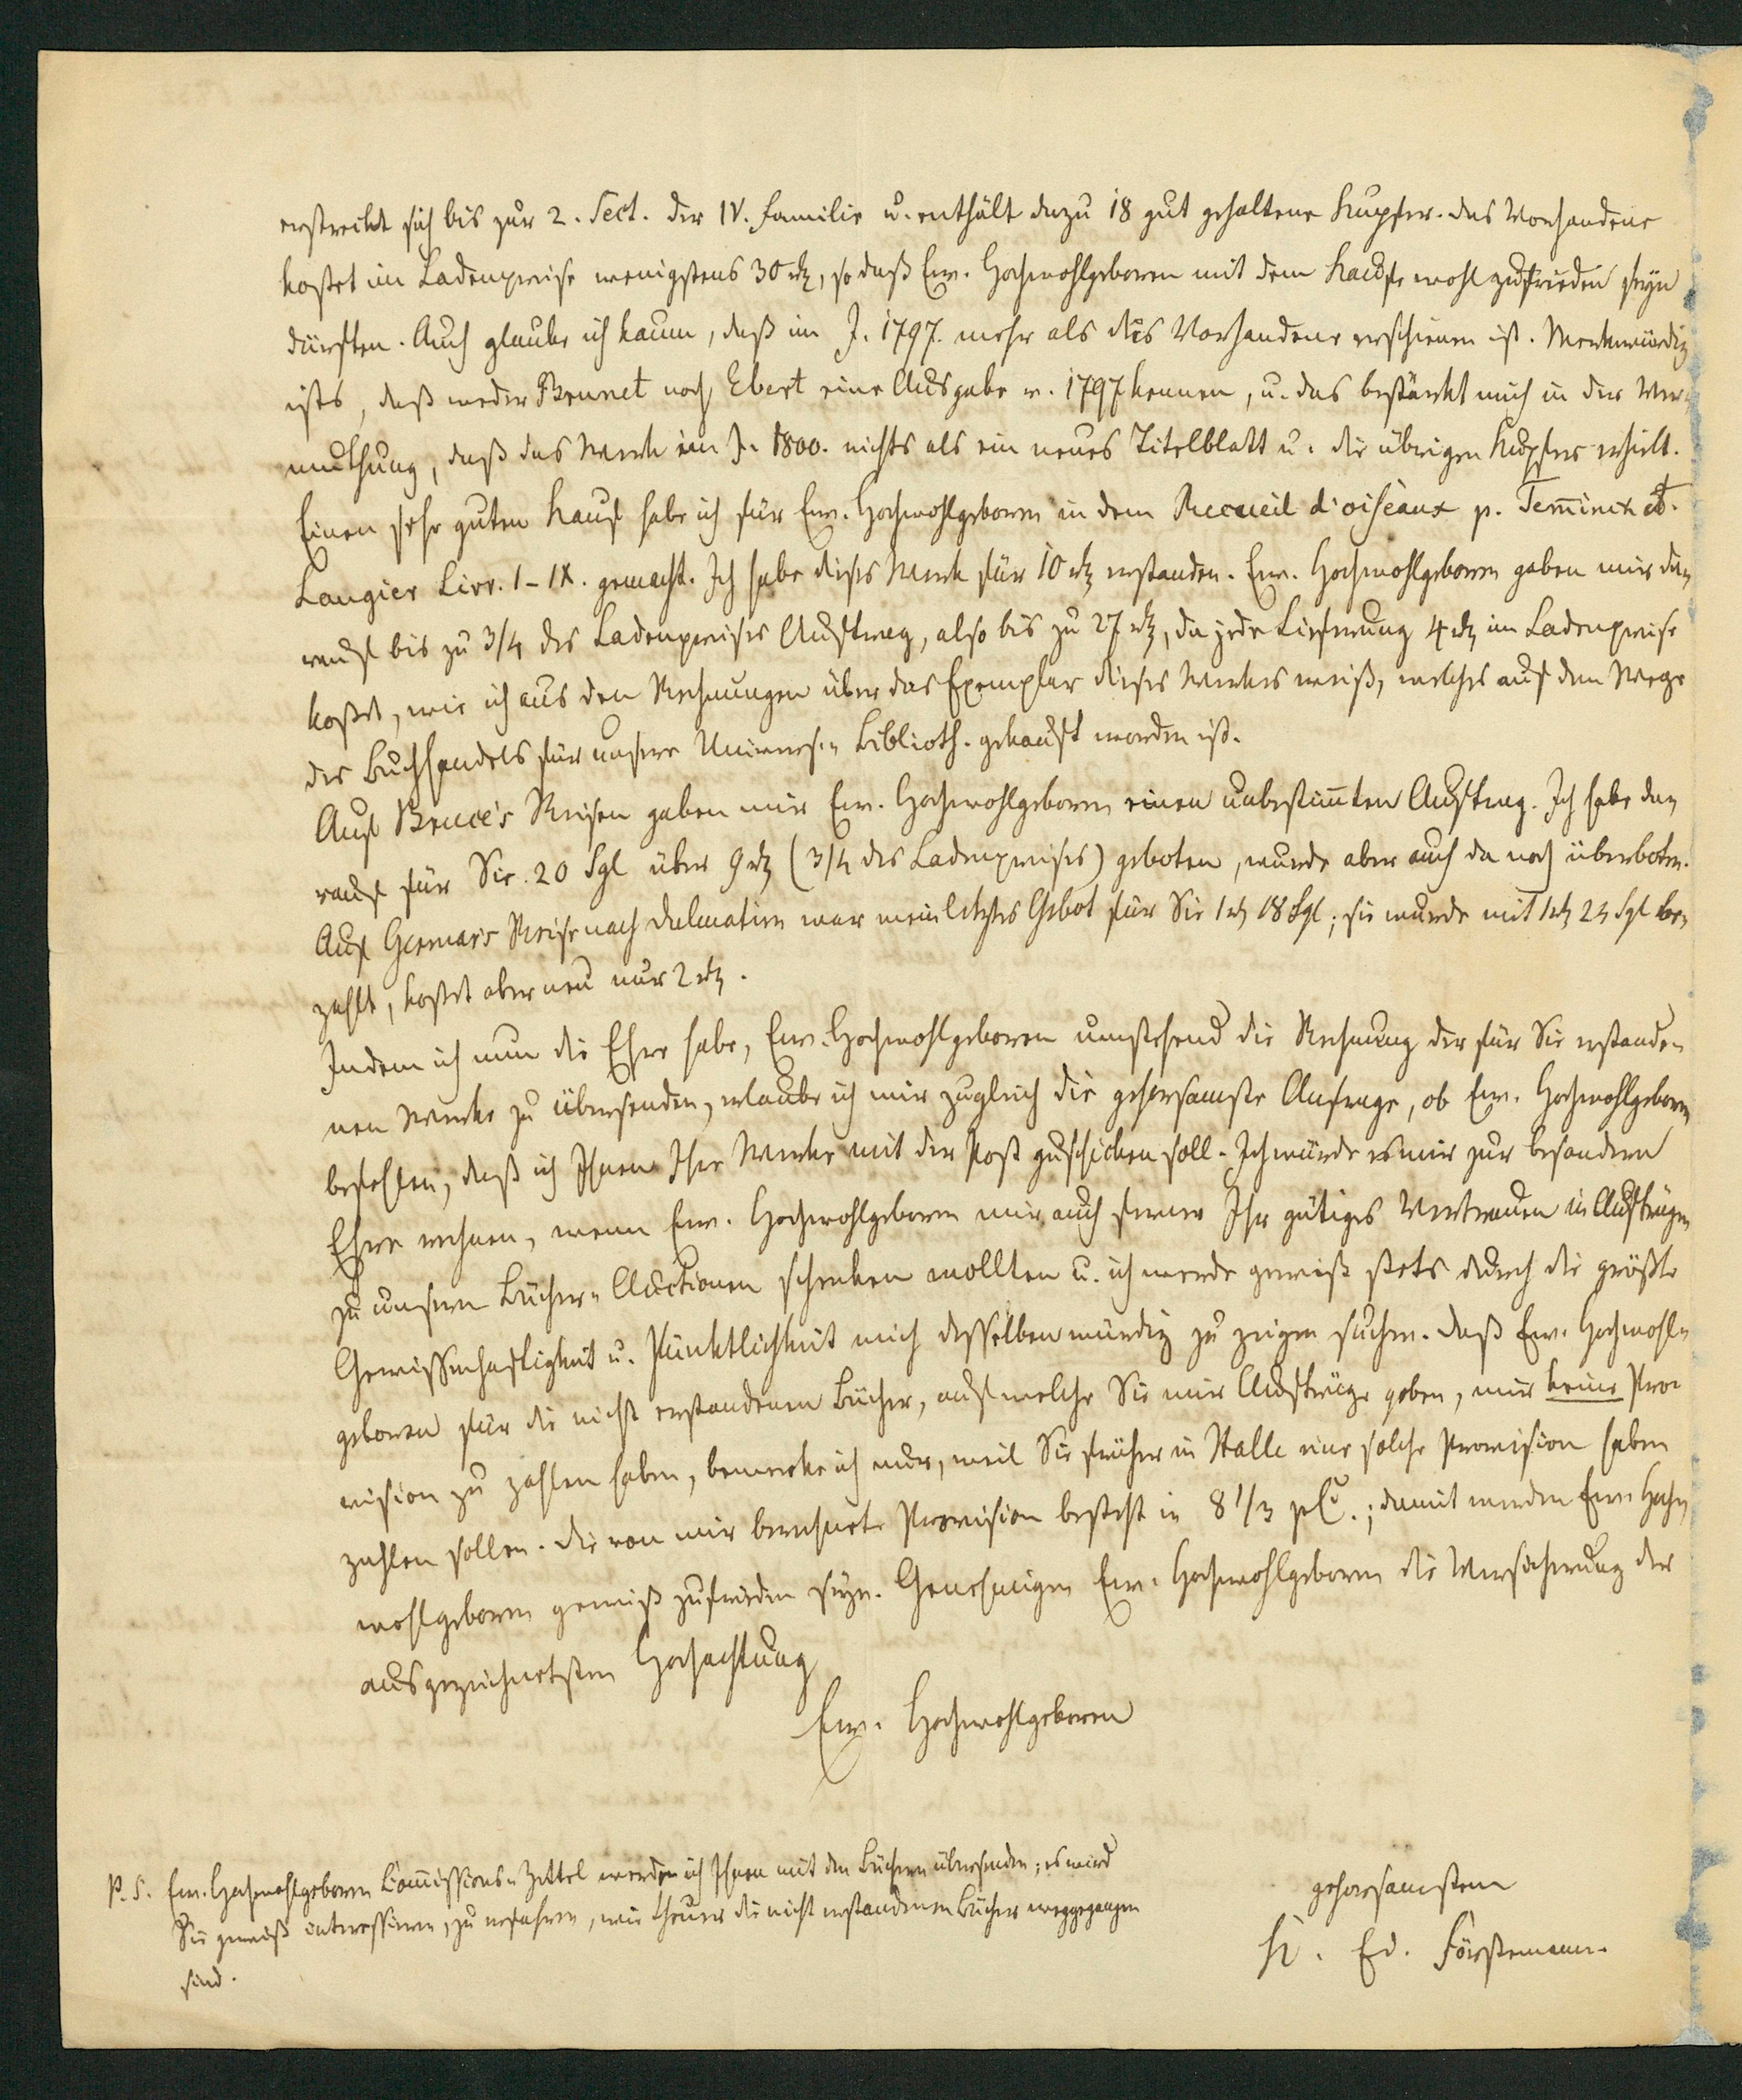 erstreckt sich bis zur 2. Sect. der IV. Familie u. enthält dazu 18 gut gehaltene Kupfer. Das Vorhandene
kostet im Ladenpreise wenigstens 30 rh, so daß Ew. Hochwohlgeboren mit dem Kaufe wohl zufrieden seyn
dürften. Auch glaube ich kaum, daß im J. 1797. mehr als das Vorhandene erschienen ist. Merkwürdig
ists, daß weder Brunet noch Ebert eine Ausgabe v. 1797 kennen, u. das bestärkt mich in der Ver-
muthung, daß das Werk im J. 1800. nichts als ein neues Titelblatt u. die übrigen Kupfer erhielt.
Einen sehr guten Kauf habe ich für Ew. Hochwohlgeboren in dem Recueil d'oiseaux p. Tem̄inck et.
Laugier Livr. I-IX. gemacht. Ich habe dieses Werk für 10 rh erstanden. Ew. Hochwohlgeboren gaben mir da-
rauf bis zu 3/4 des Ladenpreises Auftrag, also bis zu 27 rh, da jede Lieferung 4 rh im Ladenpreise
kostet, wie ich aus den Rechnungen über das Exemplar dieses Werkes weiß, welches auf dem Wege
des Buchhandels für unsere Univers.-Biblioth. gekauft worden ist.
Auf Bruce's Reisen gaben mir Ew. Hochwohlgeboren einen unbestim̄ten Auftrag. Ich habe da-
rauf für Sie 20 Sgl über 9 rh (3/4 des Ladenpreises) geboten, wurde aber auch da noch überboten.
Auf Germar's Reise nach Dalmatien war mein letztes Gebot für Sie 1 rh 18 Sgl; sie wurde mit 1 rh 24 Sgl be-
zahlt, kostet aber neu nur 2 rh.
Indem ich nun die Ehre habe, Ew. Hochwohlgeboren umstehend die Rechnung der für Sie erstande-
nen Werke zu übersenden, erlaube ich mir zugleich die gehorsamste Anfrage, ob Ew. Hochwohlgeboren
befehlen, daß ich Ihnen Ihre Werke mit der Post zuschicken soll. Ich würde es mir zur besondern
Ehre rechnen, wenn Ew. Hochwohlgeboren mir auch ferner Ihr gütiges Vertrauen in Aufträgen
zu unsern Bücher-Auctionen schenken wollten u. ich werde gewiß stets durch die größte
Gewissenhaftigkeit u. Pünktlichkeit mich desselben würdig zu zeigen suchen. Daß Ew. Hochwohl-
geboren für die nicht erstandenen Bücher, auf welche Sie mir Aufträge geben, mir keine Pro-
vision zu zahlen haben, bemerke ich nur, weil Sie früher in Halle eine solche Provision haben
zahlen sollen. Die von mir berechnete Provision besteht in 8 1/3 pC.; damit werden Ew. Hoch-
wohlgeboren gewiß zufrieden seyn. Genehmigen Ew. Hochwohlgeboren die Versicherung der
ausgezeichnetsten Hochachtung
Ew. Hochwohlgeboren
gehorsamstem
K. Ed. Förstemann.
P. S. Ew. Hochwohlgeboren Com̄issions-Zettel werde ich Ihnen mit den Büchern übersenden; es wird
Sie gewiß interessiren, zu erfahren, wie theuer die nicht erstandenen Bücher weggegangen
sind.